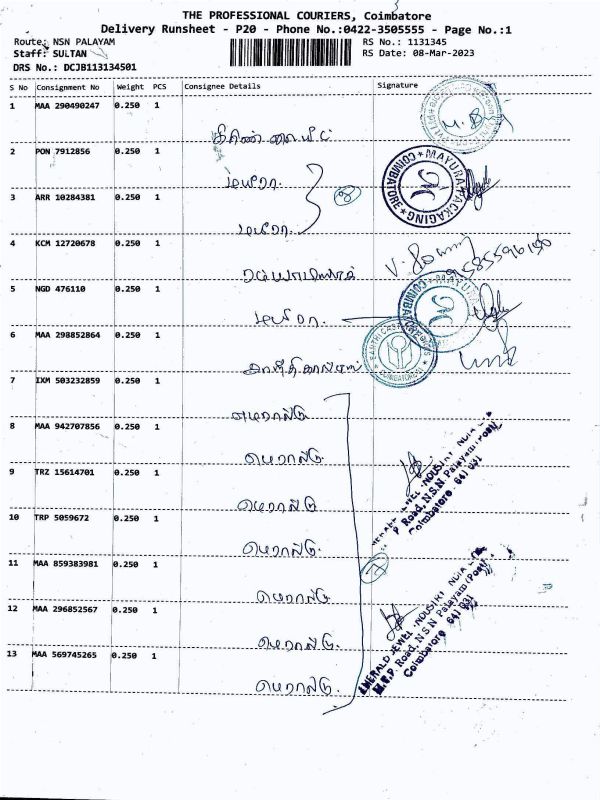 THE PROFESSIONAL COURIERS, Coimbatore
Delivery Runsheet - P20 - Phone No.:0422-3505555 - Page No.:1
Route: NSN PALAYAM
RS No.: 1131345
Staff: SULTAN
RS Date: 08-Mar-2023
DRS No.: DCJB113134501
S No Consignment No Weight PCS Consignee Details Signature
1 MAA 290490247 0.250 1
2 PON 7912856 0.250 1
COIMBATORE * MAYURA PACKAGING *
மயூரா.
3 ARR 10284381 0.250 1
மயூரா.
4 KCM 12720678 0.250 1
9585596190
5 NGD 476110 0.250 1
மயூரா.
6 MAA 298852864 0.250 1
7 IXM 503232859 0.250 1
எமரால்டு
8 MAA 942707856 0.250 1
எமரால்டு
9 TRZ 15614701 0.250 1
எமரால்டு
P. Road, N.S.N. Palayam (Post)
Coimbatore - 641 031
10 TRP 5059672 0.250 1
எமரால்டு.
11 MAA 859383981 0.250 1
7
எமரால்டு
12 MAA 296852567 0.250 1
எமரால்டு.
EMERALD JEWEL INDUSTRY INDIA
M.T.P. Road, N.S.N. Palayam (Post)
Coimbatore - 641 031
13 MAA 569745265 0.250 1
எமரால்டு.